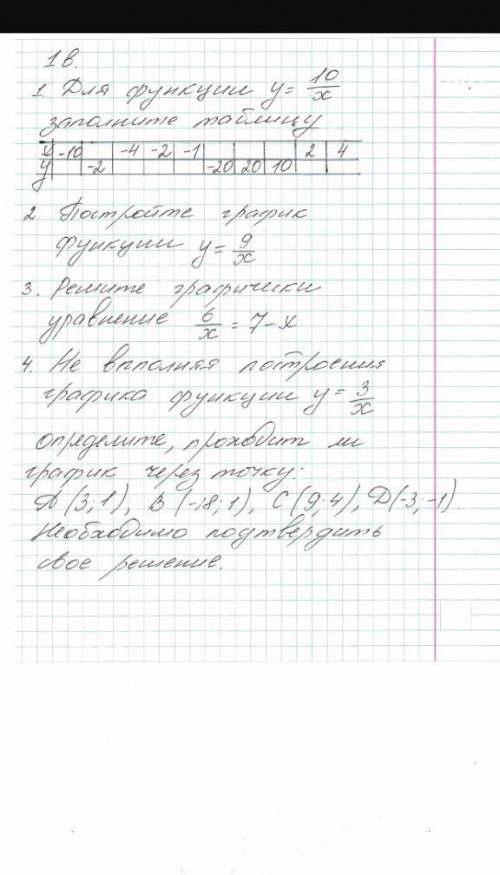 1в.
1 Для функции y = 10/x
заполните таблицу
x -10 -4 -2 -1 2 4
y -2 -20 20 10
2 Постройте график
функции y = 9/x
3. Решите графически
уравнение 6/x = 7-x
4. Не выполняя построения
графика функции y = 3/x
определите, проходит ли
график через точку:
A (3; 1), B (-18; 1), C (9; 4), D (-3; -1).
Необходимо подтвердить
свое решение.